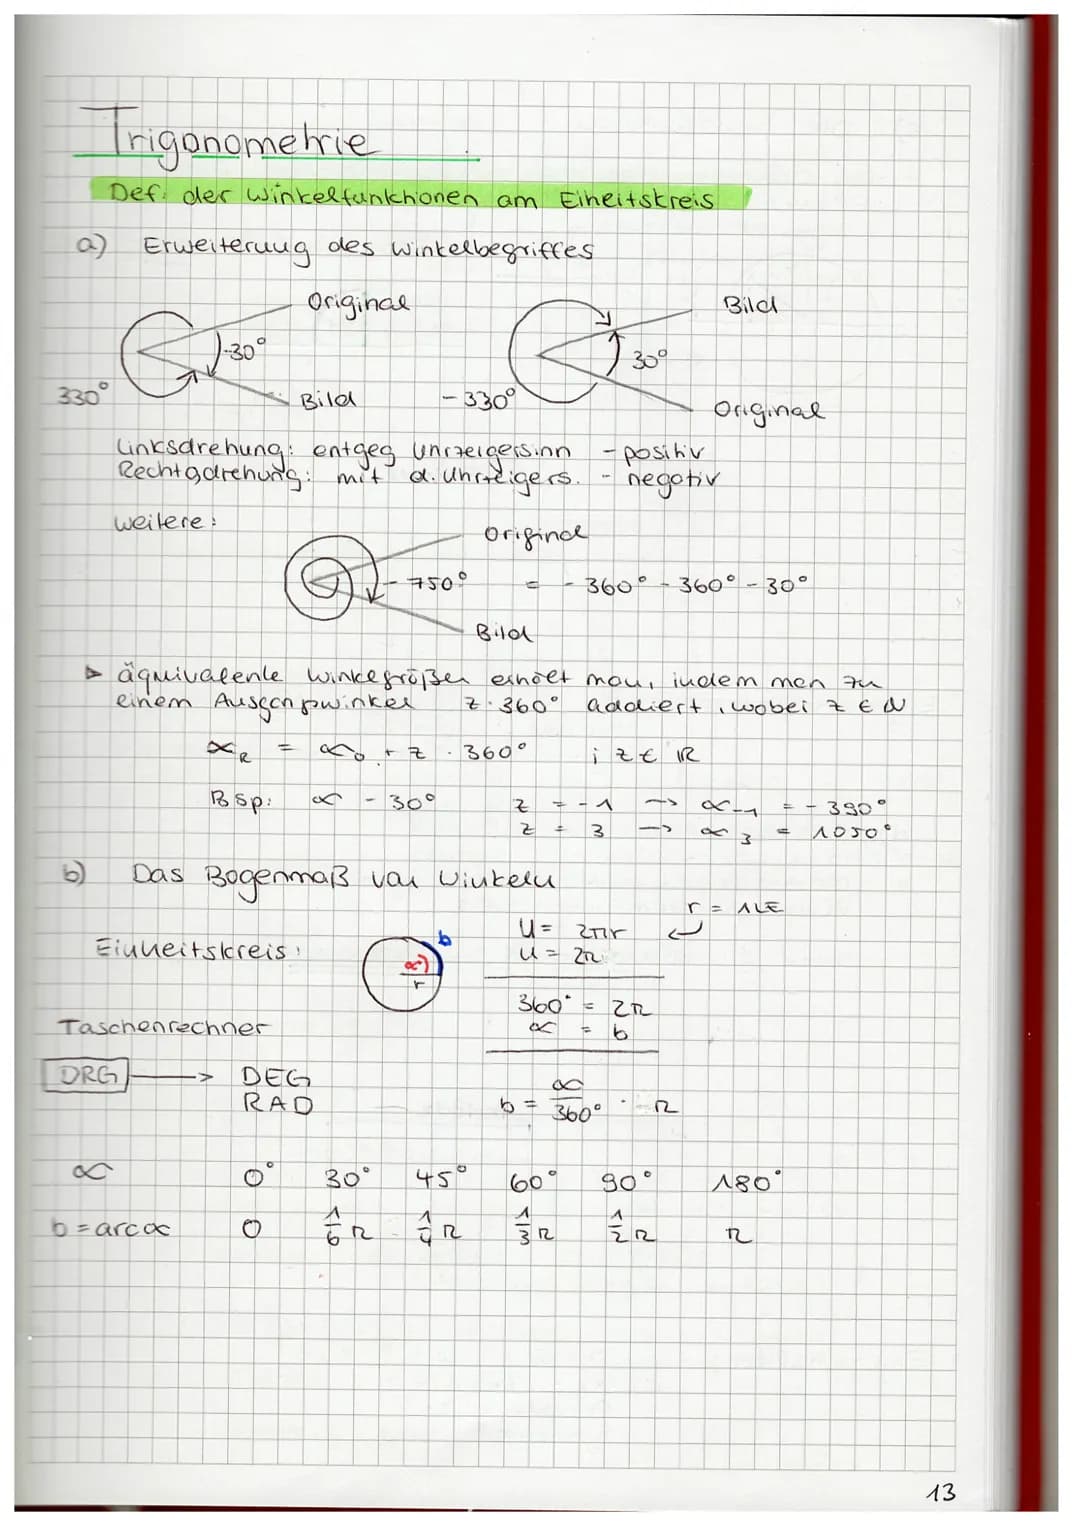 Trigonometrie
Def. der Winkelfunktionen am Eiheitskreis
a) Erweiterung des Winkelbegriffes
Original
Bild
-30°
30°
330°
Bild
-330°
Original
Linksdrehung: entgeg Uhrzeigersinn - positiv
Rechtsdrehung: mit d. Uhrzeigers. - negativ
weitere:
Original
- 750° = - 360° - 360° - 30°
Bild
▷ äquivalente Winkelgrößen erhält man, indem man zu
einem Ausgangswinkel z · 360° addiert, wobei z ∈ N
α_R = α_0 + z · 360° ; z ∈ ℝ
Bsp: α - 30° z = -1 → α_-1 = - 390°
z = 3 → α_3 = 1050°
b) Das Bogenmaß von Winkeln
r = 1LE
Einheitskreis: α b r U = 2πr
U = 2π
360° = 2π
Taschenrechner α = b
DRG → DEG
RAD
b = α/360° · π
α 0° 30° 45° 60° 90° 180°
b = arc α 0 1/6 π 1/4 π 1/3 π 1/2 π π
13